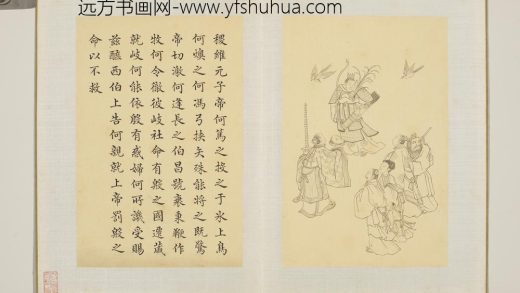 远方书画网-www.yfshuhua.com
稷維元子帝何篤之投之于氷上鳥
何燠之何馮弓挾矢殊能將之既驚
帝切激何逢長之伯昌號衰秉鞭作
牧何令徹彼岐社命有殷之國遷藏
就岐何能依殷有惑婦何所譏受賜
茲醢西伯上告何親就上帝罰殷之
命以不救